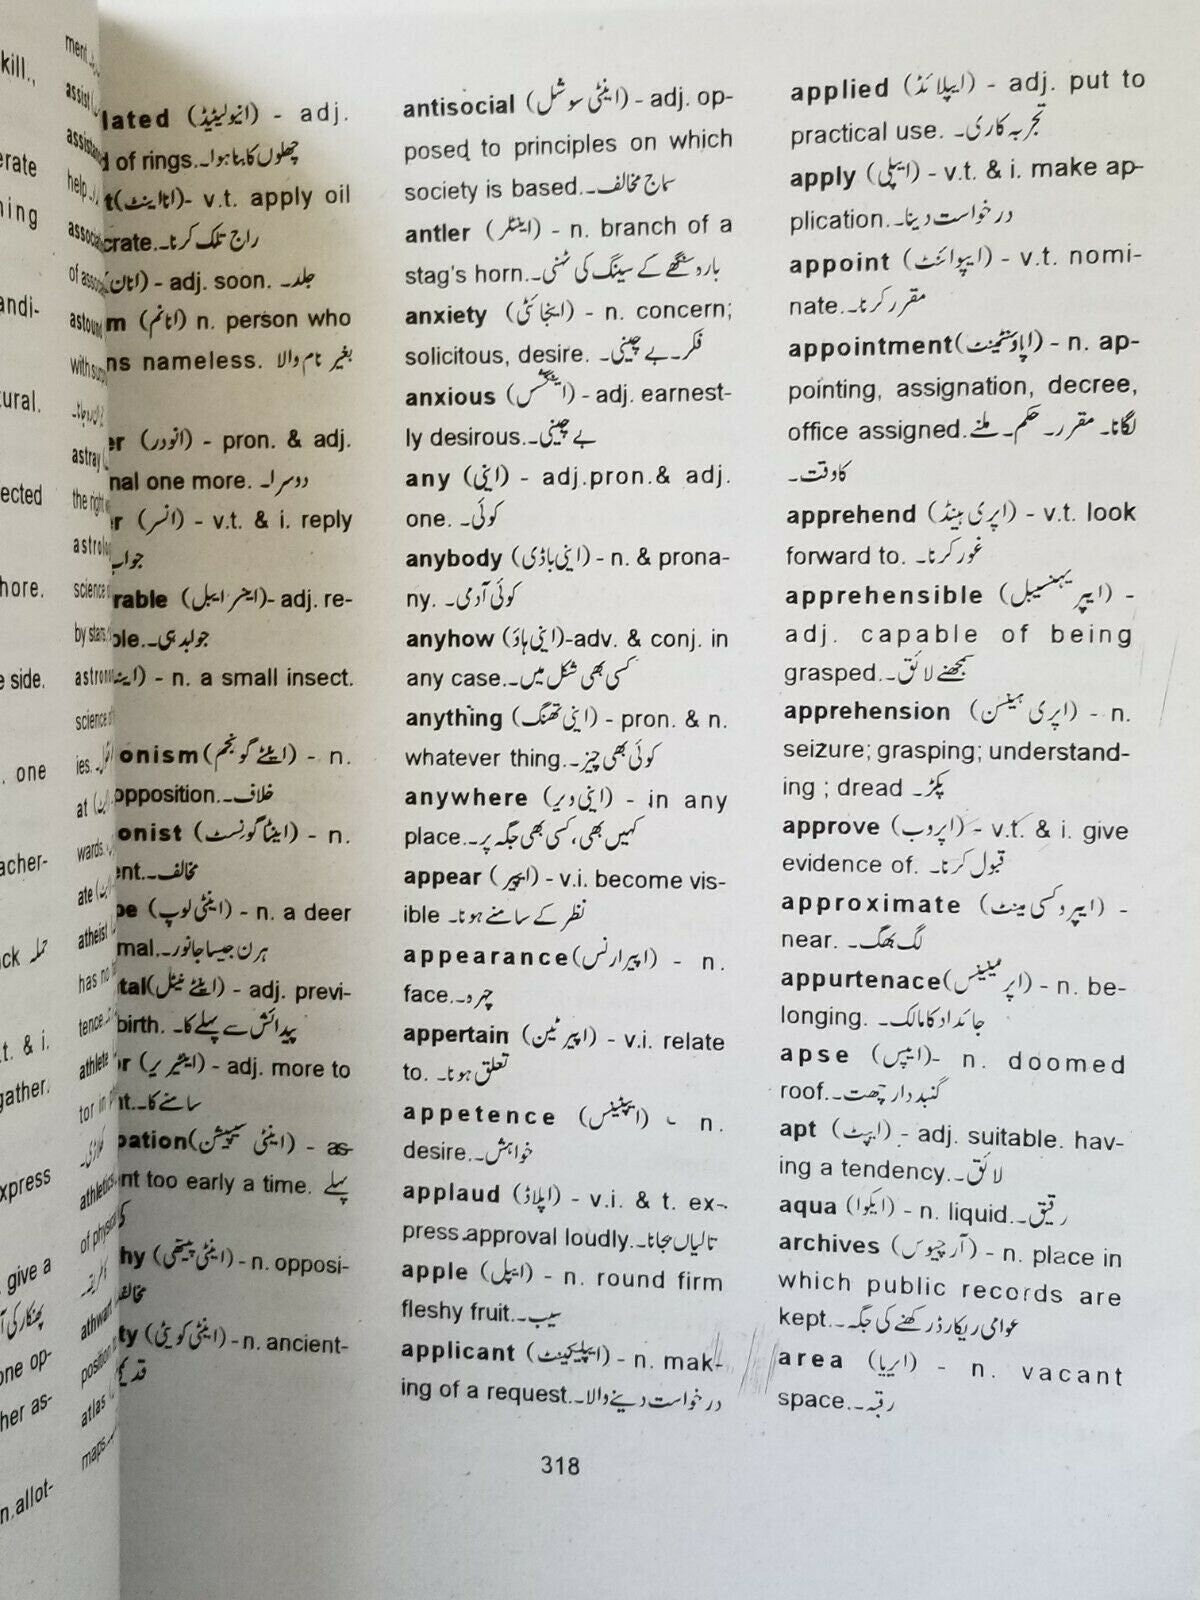 kill.,
erate
ning
andi-
tural.
ected
hore.
e side.
. one
acher-
ck حملہ
.t. & i.
gather.
xpress
give a
one op-
her as-
n.allot-
ment.
assist
help
of
with
astray
the right
science of
by stars.
science of
ies.
at
wards.
ate
atheist
has no
tence
athlete
tor in
of physical
athwart
position
atlas
maps
lated (انیولیٹیڈ) - adj.
d of rings. چھلوں کا بنا ہوا۔
t(انااینٹ)- v.t. apply oil
crate. راج تلک کرنا۔
(انان) - adj. soon. جلد۔
m (انانم) n. person who
ns nameless. بغیر نام والا
er (انودر) - pron. & adj.
nal one more. دوسرا۔
r (انسر) - v.t. & i. reply
جواب
rable (اینسر ایبل)- adj. re-
ble. جولبدہی۔
- n. a small insect.
onism(اینٹے گونجم) - n.
opposition. خلاف۔
onist (اینٹا گونسٹ) - n.
ent. مخالف۔
pe (اینٹی لوپ) - n. a deer
mal. ہرن جیسا جانور۔
tal(اینٹے نیٹل) - adj. previ-
birth. پیدائش سے پہلے کا۔
or (اینٹیریر) - adj. more to
nt. سامنے کا۔
pation(اینٹی سیپیشن) - as-
nt too early a time. پہلے
کی
hy (اینٹی پیتھی) - n. opposi-
مخالف
ty (اینٹی کویٹی) - n. ancient-
قدیم
antisocial (اینٹی سوشل) - adj. op-
posed to principles on which
society is based. سماج مخالف۔
antler (اینٹلر) - n. branch of a
stag's horn. بارہ سنگھے کے سینگ کی ٹہنی۔
anxiety (اینجائٹی) - n. concern;
solicitous, desire. فکر۔ بے چینی۔
anxious - adj. earnest-
ly desirous. بے چینی۔
any (اینی) - adj.pron.& adj.
one. کوئی۔
anybody (اینی باڈی) - n. & prona-
ny. کوئی آدمی۔
anyhow (اینی ہاؤ)-adv. & conj. in
any case. کسی بھی شکل میں۔
anything (اینی تھنگ) - pron. & n.
whatever thing. کوئی بھی چیز۔
anywhere (اینی ویر) - in any
place. کہیں بھی، کسی بھی جگہ پر۔
appear (ایپیر) - v.i. become vis-
ible نظر کے سامنے ہونا۔
appearance(اپیرارنس) - n.
face. چہرہ۔
appertain (اپیرٹین) - v.i. relate
to. تعلق ہونا۔
appetence (ایپٹینس) - n.
desire. خواہش۔
applaud (اپلاڈ) - v.i. & t. ex-
press approval loudly. تالیاں بجانا۔
apple (ایپل) - n. round firm
fleshy fruit. سیب۔
applicant (ایپلیکینٹ) - n. mak-
ing of a request. درخواست دینے والا۔
applied (ایپلائڈ) - adj. put to
practical use. تجربہ کاری۔
apply (ایپلی) - v.t. & i. make ap-
plication. درخواست دینا۔
appoint (ایپوائنٹ) - v.t. nomi-
nate. مقرر کرنا۔
appointment(اپاؤنٹمینٹ) - n. ap-
pointing, assignation, decree,
office assigned. لگانا۔ مقرر۔ حکم۔ ملنے
کا وقت۔
apprehend (اپری ہینڈ) - v.t. look
forward to. غور کرنا۔
apprehensible (ایپریہنسیبل) -
adj. capable of being
grasped. سمجھنے لائق۔
apprehension (اپری ہینسن) - n.
seizure; grasping; understand-
ing ; dread پکڑ۔
approve (اپروب) - v.t. & i. give
evidence of. قبول کرنا۔
approximate (ایپروکسی مینٹ) -
near. لگ بھگ۔
appurtenace(اپرٹینینس) - n. be-
longing. جائداد کا مالک۔
apse (ایپس)- n. doomed
roof. گنبد دار چھت۔
apt (ایپٹ) - adj. suitable. hav-
ing a tendency. لائق۔
aqua (ایکوا) - n. liquid. رقیق۔
archives (آرچیوس) - n. place in
which public records are
kept. عوامی ریکارڈ رکھنے کی جگہ۔
area (ایریا) - n. vacant
space. رقبہ۔
318